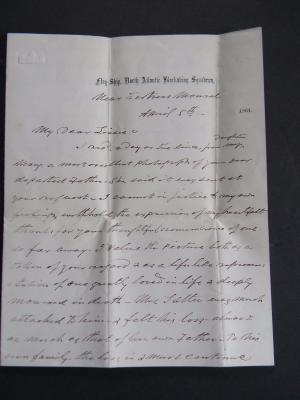 Flag-Ship, North Atlantic Blockading Squadron,
Near Fortress Monroe
April 5th 1864.
My Dear
I recd a day or two since, from
daughter
Mary a most excellent Photograph of your dear
departed Father. She said it was sent at
your request. I cannot in justice to my own
feelings withhold the expression of my heartfelt
thanks for your thoughtful remembrance of one
so far away. I value the picture both as a
token of your regard & as a life like represen-
tation of one greatly loved in life & deeply
mourned in death. Mrs. was much
attached to him & felt his loss almost
as much as that of her own Father. To his
own family the loss is & must continue